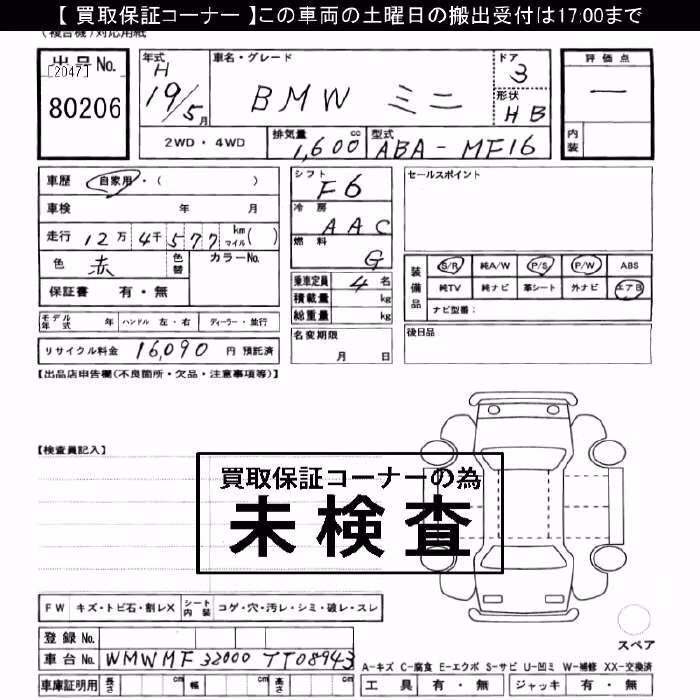 【 買取保証コーナー 】この車両の土曜日の搬出受付は17:00まで
(複合機)対応用紙
出品No.
[2047]
80206
年式
H
19/5月
車名・グレード
BMW ミニ
ドア
3
形状
HB
評価点
一
内装
2WD・4WD
排気量
1,600cc
型式
ABA-MF16
車歴 自家用・( )
車検 年 月
走行 12万4千577 km マイル( )
色 赤 色替 カラーNo.
保証書 有・無
シフト
F6
冷房
AAC
燃料
G
乗車定員 4名
積載量 kg
総重量 kg
セールスポイント
装備品
S/R 純A/W P/S P/W ABS
純TV 純ナビ 革シート 外ナビ エアB
ナビ型番:
モデル年式 年 ハンドル 左・右 ディーラー・並行
リサイクル料金 16,090 円 預託済
名変期限
月 日
後日品
【出品店申告欄(不良箇所・欠品・注意事項等)】
【検査員記入】
買取保証コーナーの為
未検査
FW キズ・トビ石・割レX シート内装 コゲ・穴・汚レ・シミ・破レ・スレ
登録No.
車台No. WMWMF32000TT08943
車庫証明用 長さ cm 幅 cm 高さ cm
スペア
A-キズ C-腐食 E-エクボ S-サビ U-凹ミ W-補修 XX-交換済
工具 有・無 ジャッキ 有・無